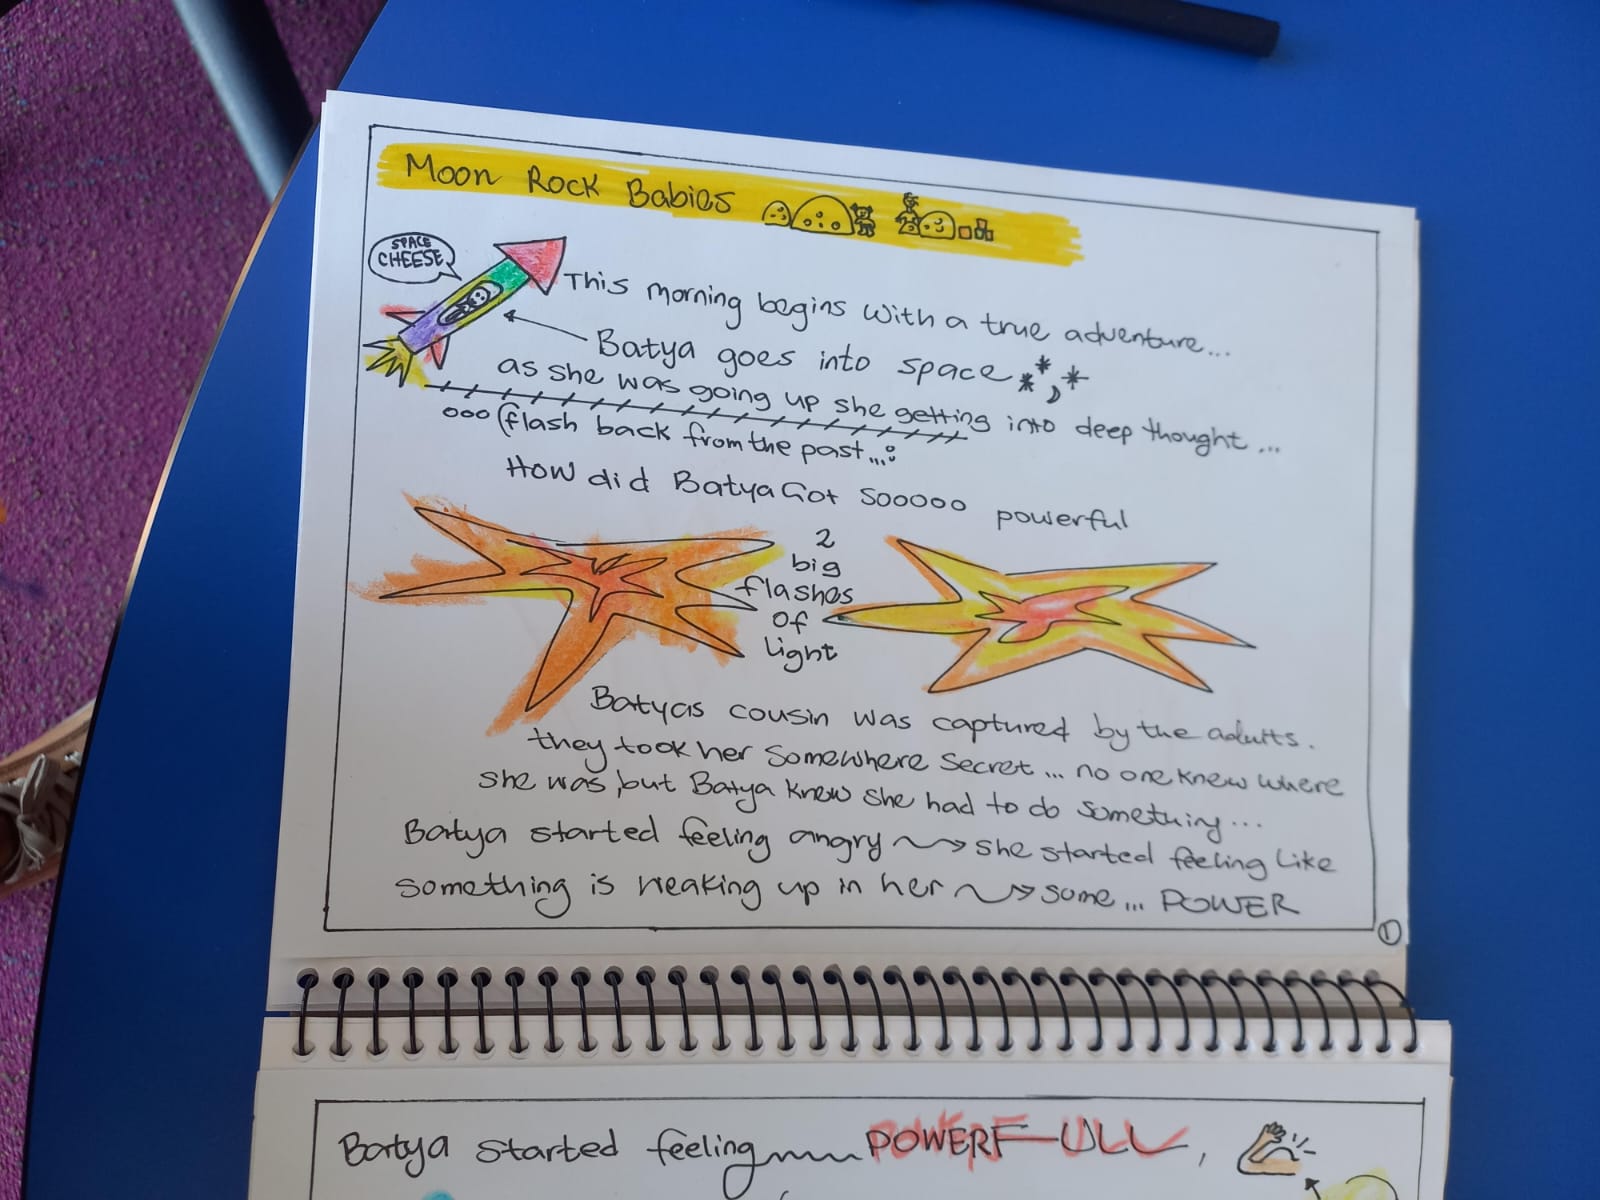 Moon Rock Babies
SPACE
CHEESE
This morning begins with a true adventure...
Batya goes into space
as she was going up she getting into deep thought...
ooo (flash back from the past...:
How did Batya Got sooooo powerful
2
big
flashes
of
light
Batyas cousin was captured by the adults.
they took her somewhere secret... no one knew where
she was, but Batya knew she had to do something...
Batya started feeling angry she started feeling like
something is weaking up in her some... POWER
1
Batya started feeling POWERFULL,